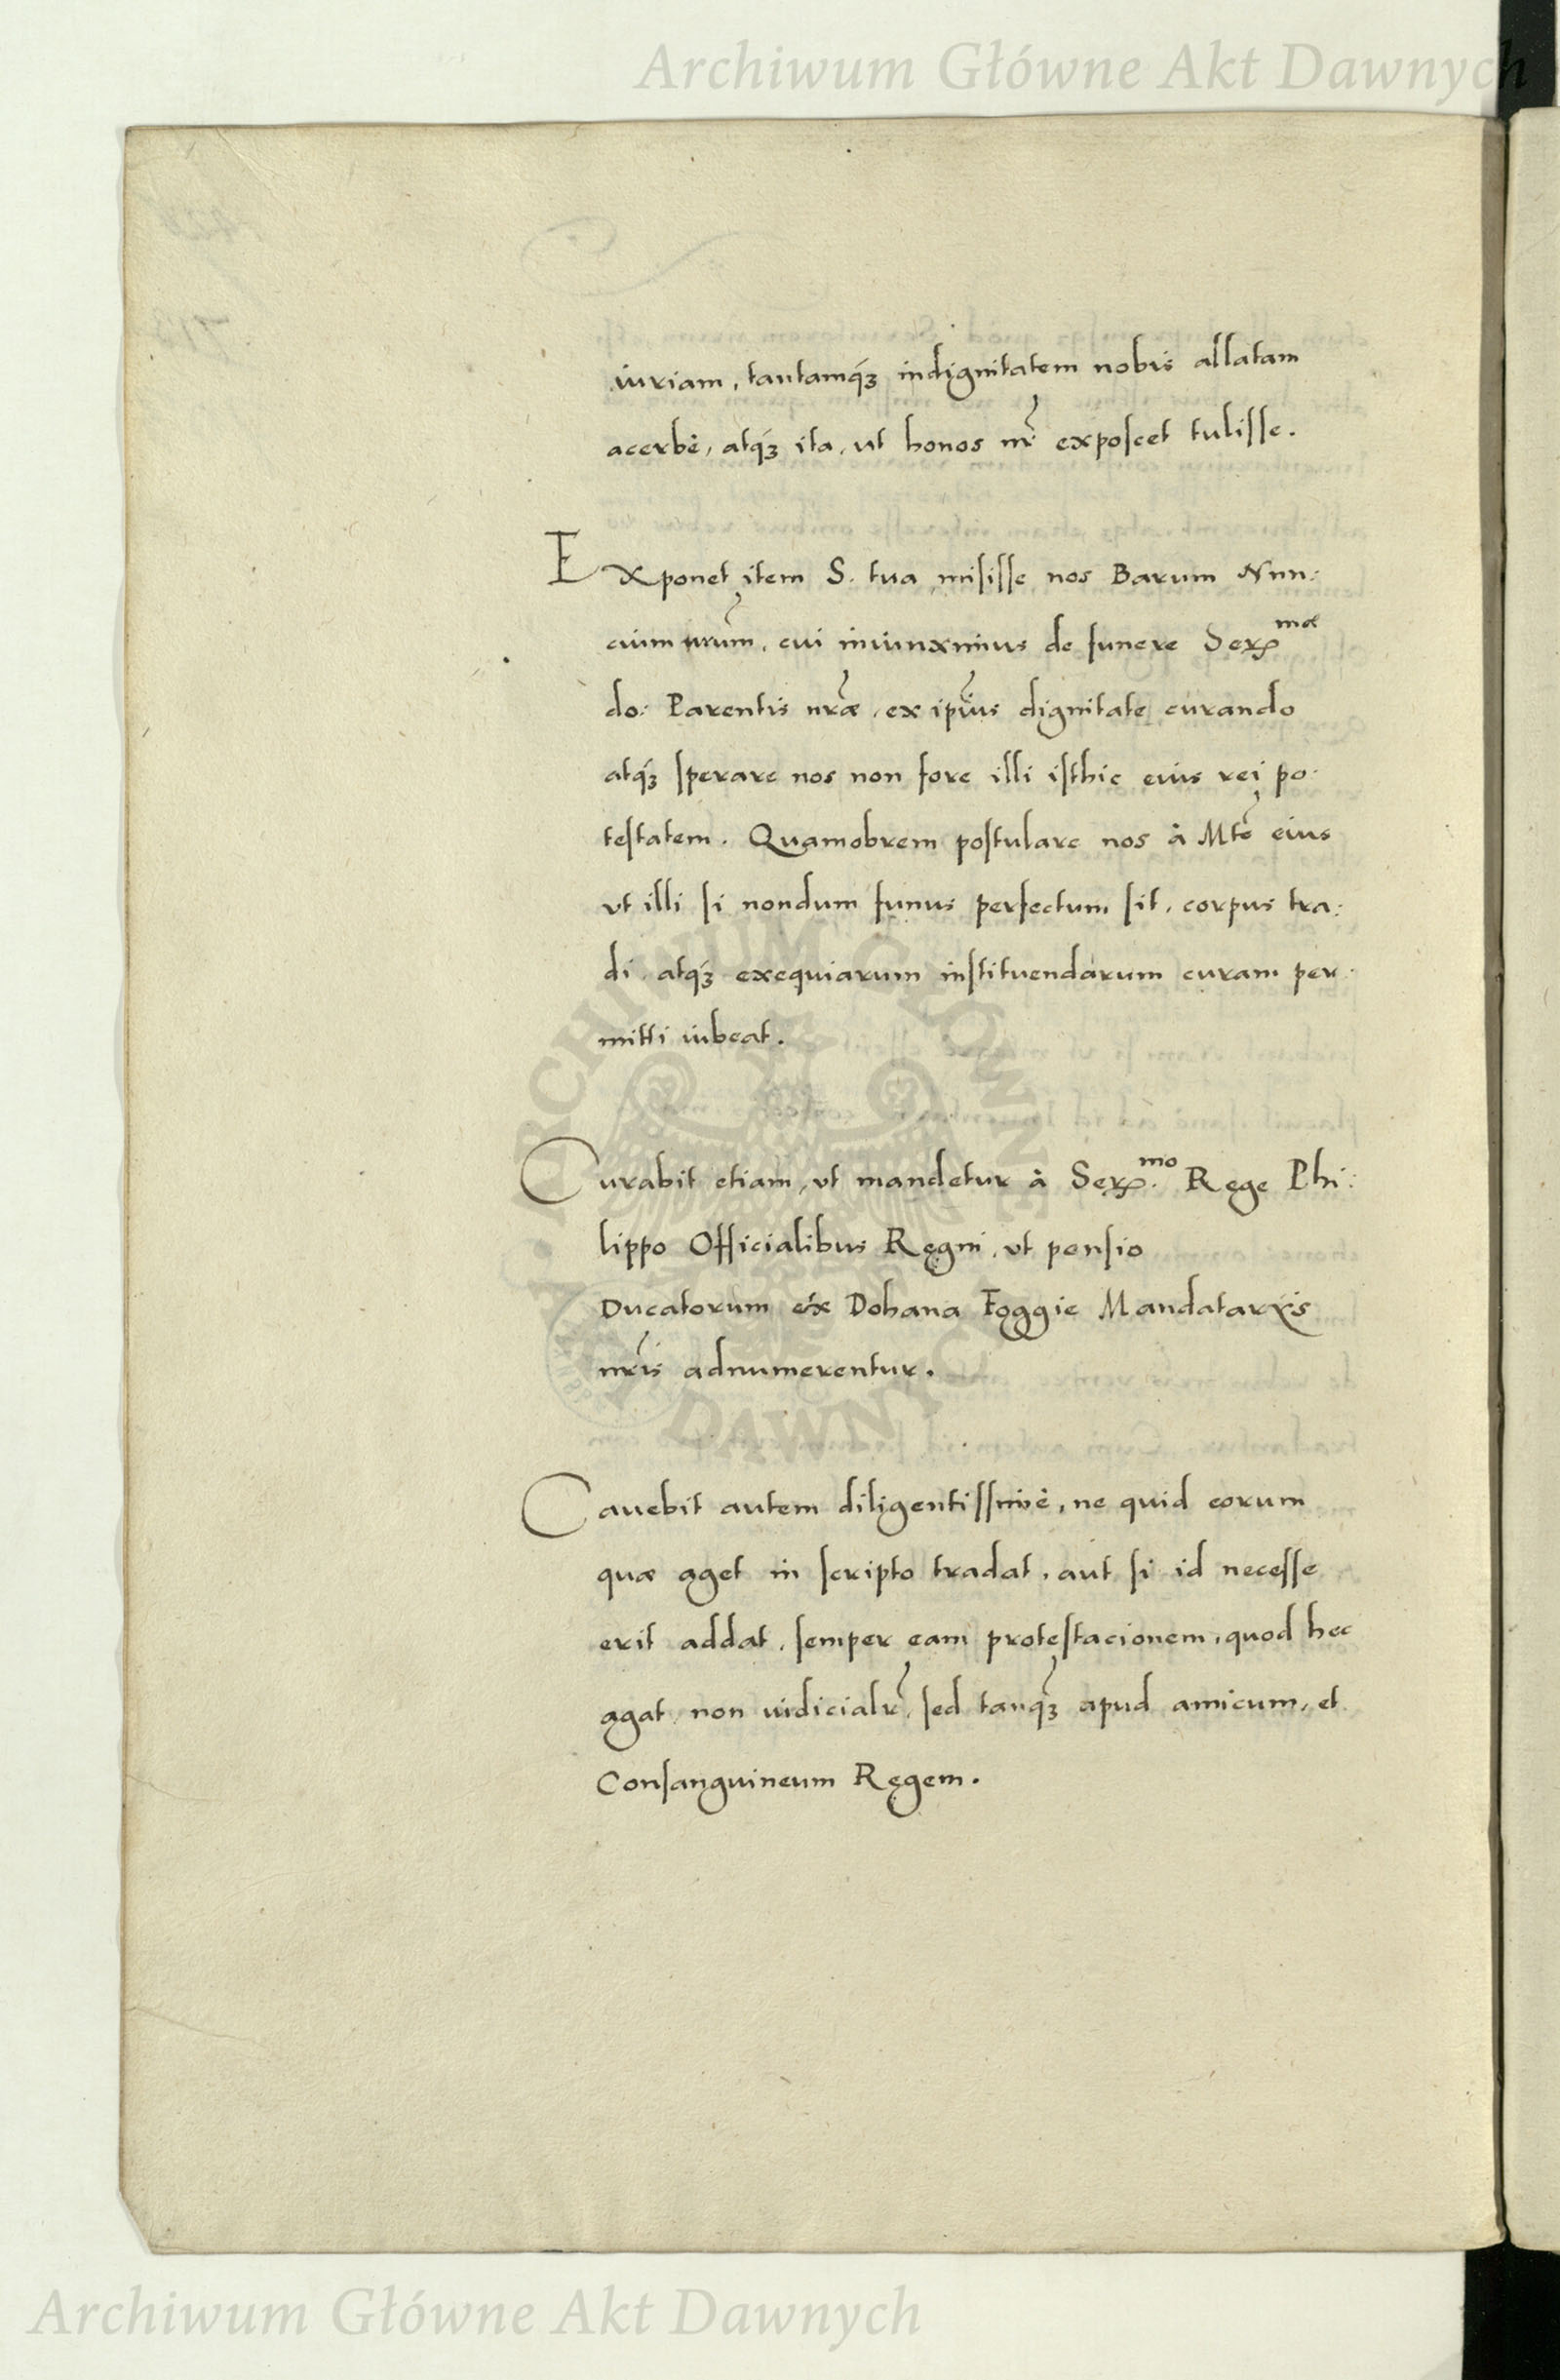 Archiwum Główne Akt Dawnych
iuriam, tantamq́ꝫ indignitatem nobis allatam
acerbè, atq́ꝫ ita, ut honos nr̃ exposcet tulisse.
Exponet item S. tua misisse nos Barum Nun:
cium nrũm, cui iniunximus de funere Serꝫᵐᵃᵉ
do: Parentis nrãe, ex ip̃ius dignitate curando
atq́ꝫ sperare nos non fore illi isthic eius rei po:
testatem. Quamobrem postulare nos à Mtẽ eius
vt illi si nondum funus perfectum sit, corpus tra:
di, atq́ꝫ exequiarum instituendarum curam per:
mitti iubeat.
Curabit etiam, vt mandetur à Serꝫ.ᵐᵒ Rege Phi:
lippo Officialibus Regni, vt pensio
Ducatorum ex Dohana Foggie Mandatarijs
nrĩs adnumerentur.
Cauebit autem diligentissimè, ne quid eorum
quæ aget in scripto tradat, aut si id necesse
erit addat, semper eam protestacionem, quod hec
agat, non iudicialr̃, sed tanq̃ꝫ apud amicum, et
Consanguineum Regem.
ARCHIWUM GŁÓWNE AKT DAWNYCH
Archiwum Główne Akt Dawnych